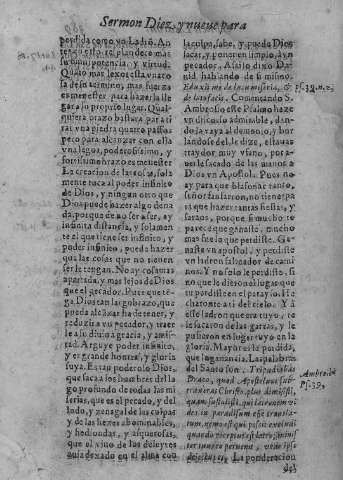 Sermon Diez, y nueve para
perdida como
tento esto, resplandece mas
su omnipotencia, y virtud.
Quãto mas lexos esta vna co-
sa de su termino, mas fuerça
es menester para hazerla lle-
gar a lo propuso llegar. Qual-
quiera braço bastara para ti-
rar vna piedra quatro passos
pero para alcançar con ella
vna legua, poderosissimo, y
fortissimo braço es menester
La creacion de las cosas, sola
mente toca al poder infinito
de Dios, y ninguno otro que
Dios puede hazer algo de na
da: porque de no ser a ser, ay
infinita distancia, y solamen
te el que tiene ser infinito, y
poder infinito, puede hazer
que las cosas que no tienen
ser le tengan. No ay cosa mas
apartada, y mas lejos de Dios
que el pecador. Pues que tẽ-
ga Dios tan largo braço, que
pueda alcãzar ha detener, y
reduzir a vn pecador, y traer
le a su diuina gracia, y amis-
tad. Arguye poder infinito,
y es grande honra, y gloria
suya. Es tan poderoso Dios,
que saca a los hombres del la
go profundo de todas las mi
serias, que es el pecado, y del
lodo, y zenagal de las culpas
y de las hezes abominables,
y hediondas, y asquerosas,
que el vino de los deleytes
auia dexado en el alma con
la culpa, sabe, y puede Dios
sacar, y poner en limpio, a vn
pecador. Assi lo dixo Da
uid hablando de si mismo.
Eduxit me de lacu miseriæ, &
de luto fæcis. Comentando S.
Ambrosio este Psalmo haze
vn distico admirable, dan-
dola vaya al demonio, y bur
landose del, le dize, estauas
traydor muy vfano, porq̃
a ues le sacado de las manos a
Dios vn Apostol. Pues no
ay para que blasonar tanto,
señor fanfarron, no tiene pa
ra que hazer tantas fiestas, y
saraos, porque si mucho te
parece que ganaste, mucho
mas fue lo que perdiste. Ga-
naste vn apostol, y perdiste
vn ladron salteador de cami
nos. Y no solo le perdiste, si
no que le dieron el lugar que
tu perdiste en el patayso. E-
charonte a ti del cielo. Y à
esse ladron que era tuyo, te
le sacaron de las garras, y le
pusieron en lugar tuyo en la
gloria. Mayor es la perdida,
que la ganancia. Las palabras
del Santo son. Tripudiabas
Draco, quod Apostolum sub-
traxeras Christo, plus dimissti,
quam sustulisti, qui latronem vi
des in paradisum esse transla-
tum, nemo est, qui possit excludi
quando receptus est latro, in de
sernere perueno, vnde ipse
deiectus es. La ponderacion
Ps. 39. n. 2.
Ambros. in
Ps. 39.
del